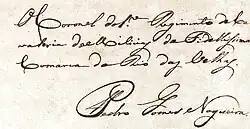 O Coronel do 1.º Regimento de Ca
valaria da Milicias da Fidelissima
Comarca do Rio das Velhas
Pedro Gomes Nogueira